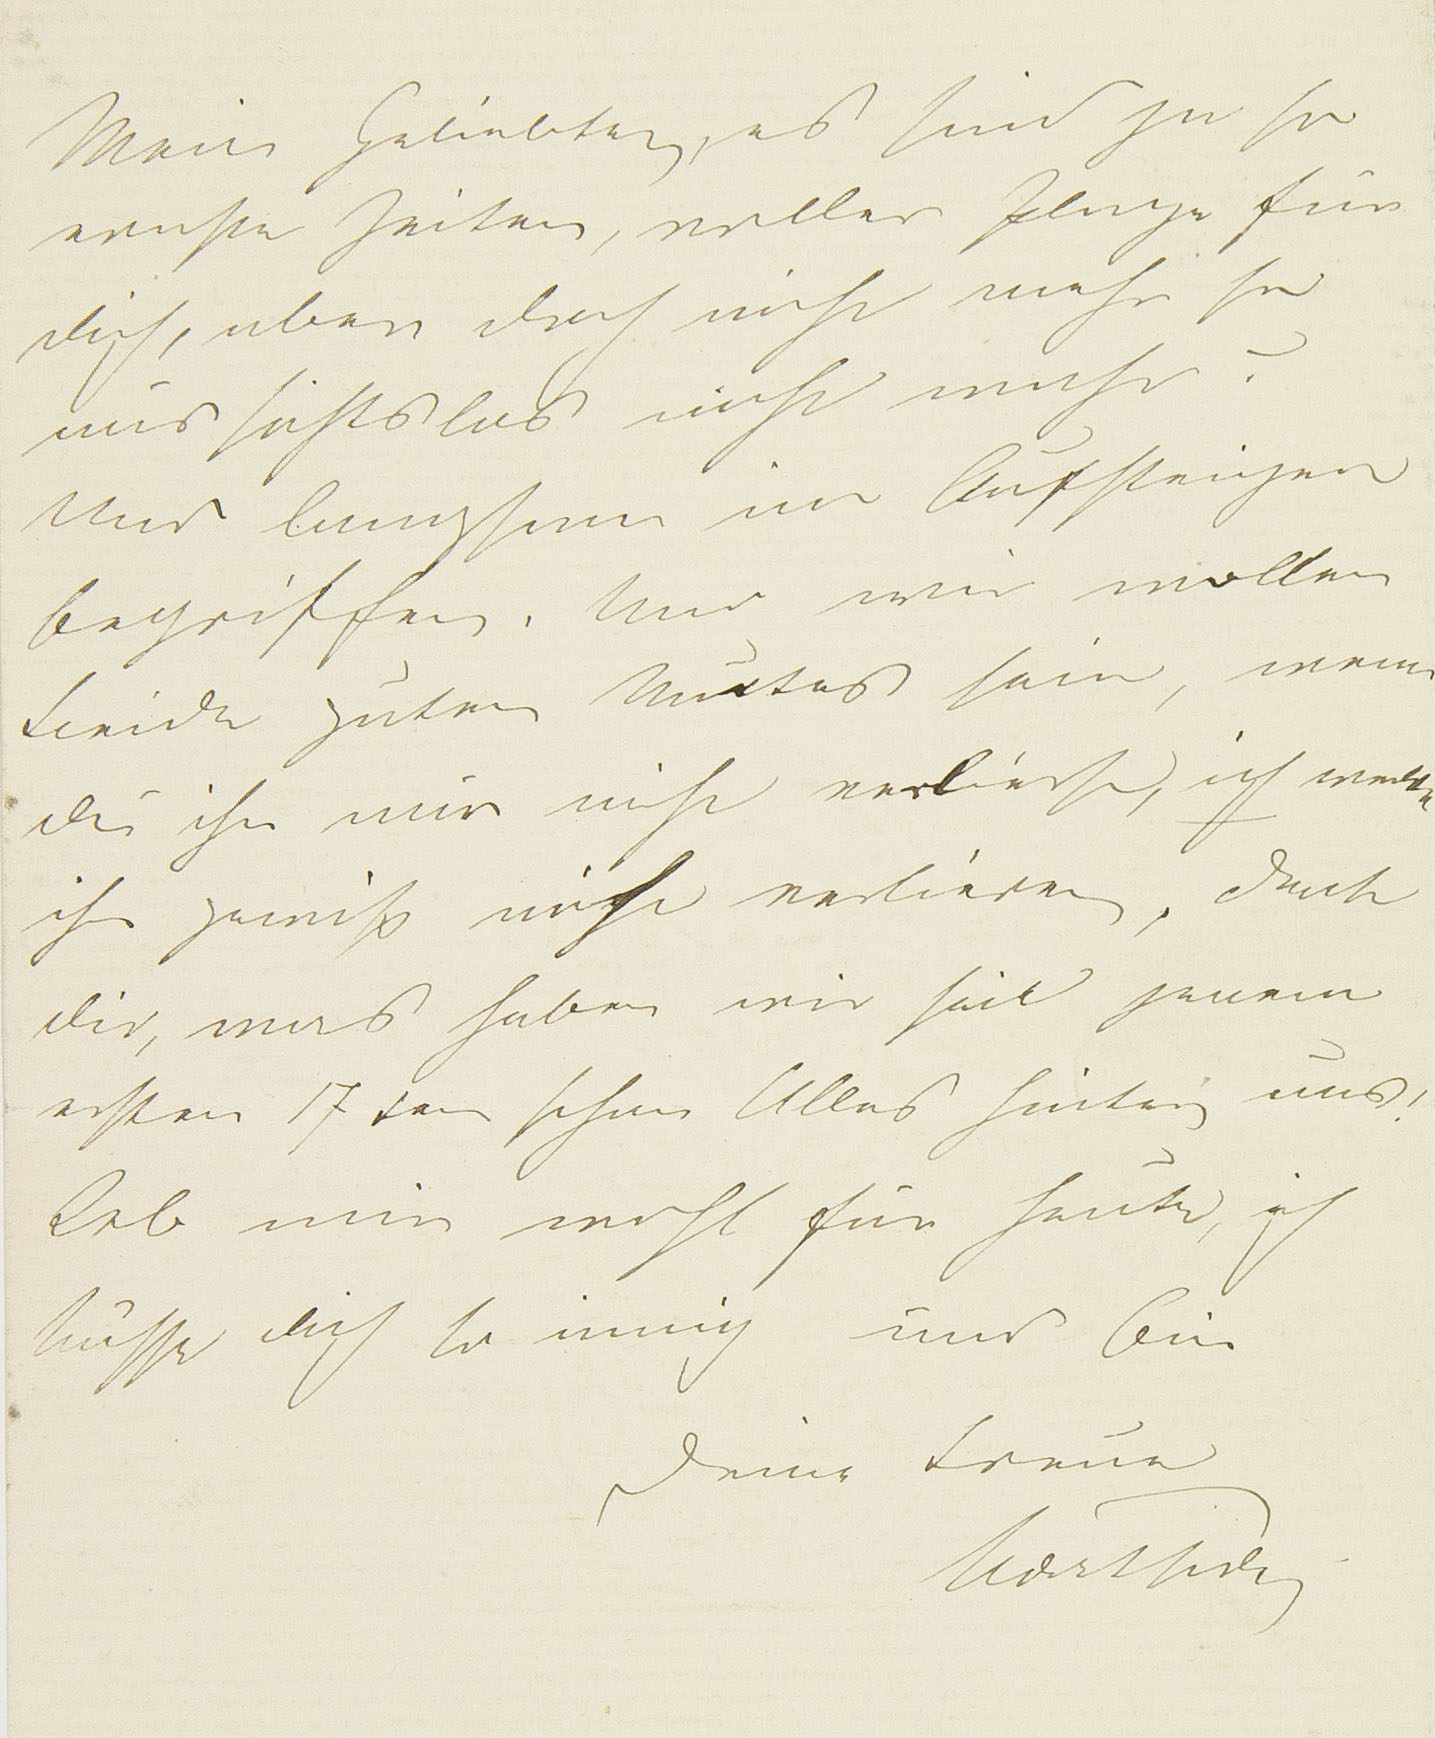 Mein Geliebter, es sind ja so
ernste Zeiten, voller Plage für
dich, aber doch nicht mehr so
aussichtslos nicht wahr?
Und langsam im Aufsteigen
begriffen. Und wir wollen
beide guten Mutes sein, wenn
du ihn nur nicht verlierst, ich werde
ihn gewiß nicht verlieren, denke
dir, was haben wir seit jenem
ersten 17ten schon Alles hinter uns!
Leb mir wohl für heute, ich
küsse dich so innig und bin
Deine treue